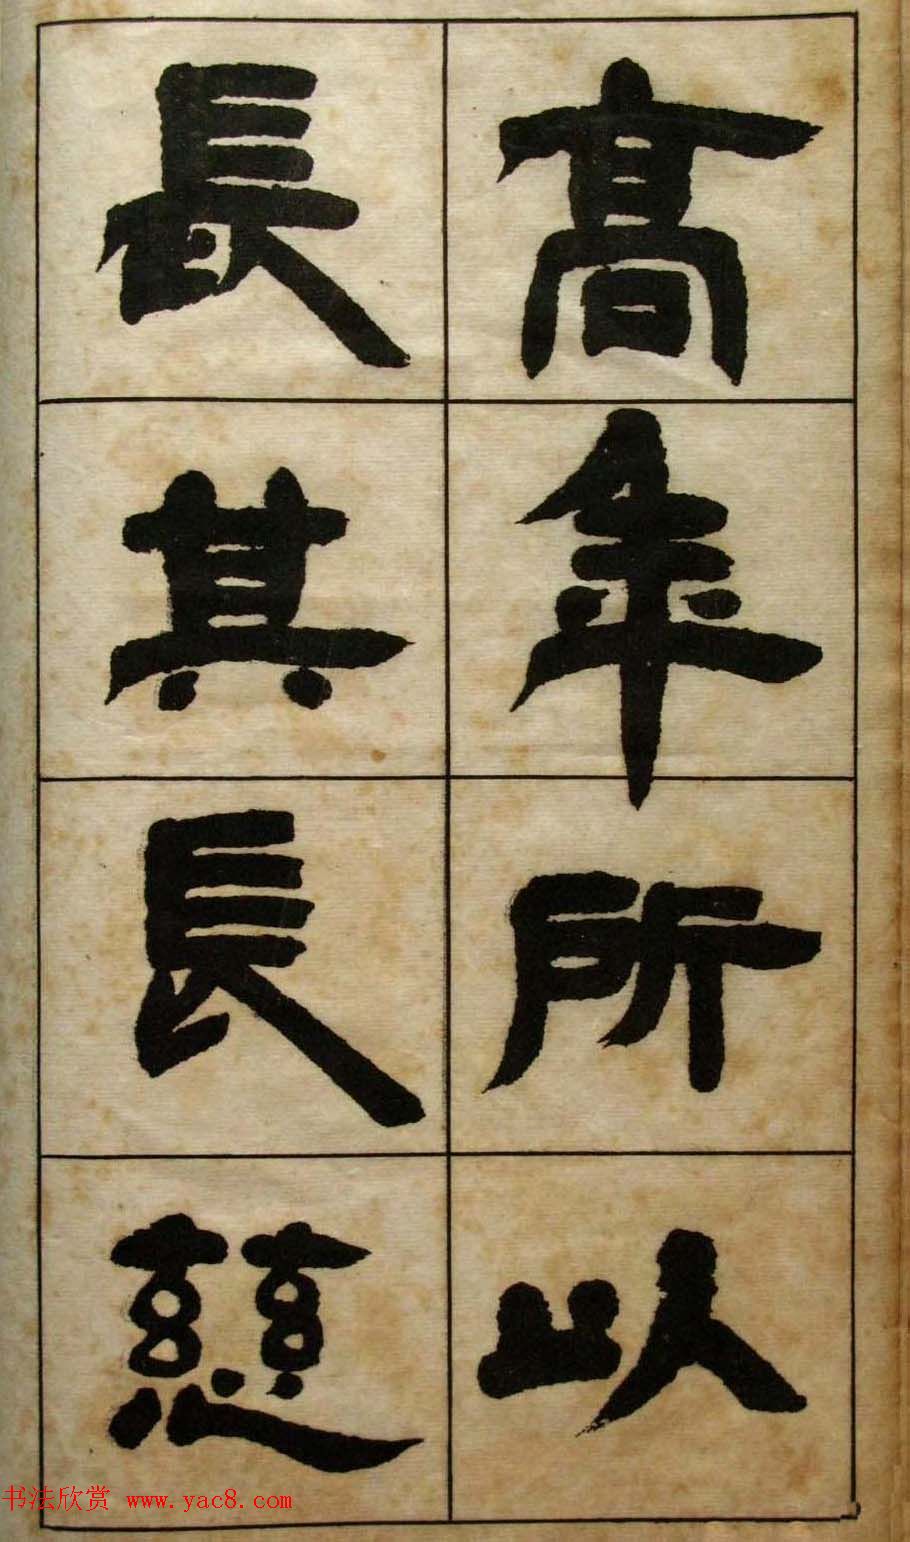 高年所以
長其長慈
书法欣赏 www.yac8.com